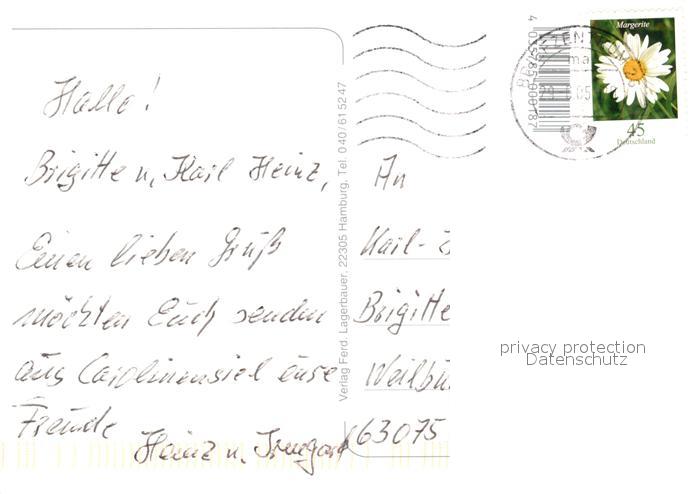 Hallo!
Brigitte u. Karl Heinz,
Einen lieben Gruß
möchten Euch senden
aus Carolinensiel eure
Freunde
Heinz u. Irmgard
Verlag Ferd. Lagerbauer, 22305 Hamburg, Tel. 040/61 52 47
An
Karl-
Brigitte
Weilbu
63075
4 035785 000787
BRIEFZENTRUM
Margerite
45
Deutschland
privacy protection
Datenschutz